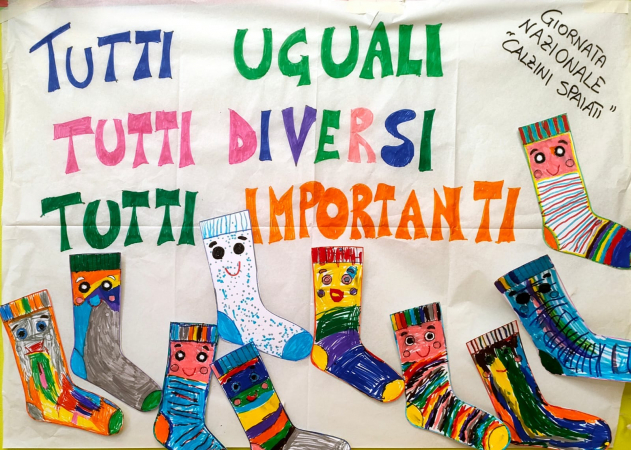 TUTTI UGUALI
TUTTI DIVERSI
TUTTI IMPORTANTI
GIORNATA
NAZIONALE
"CALZINI SPAIATI"